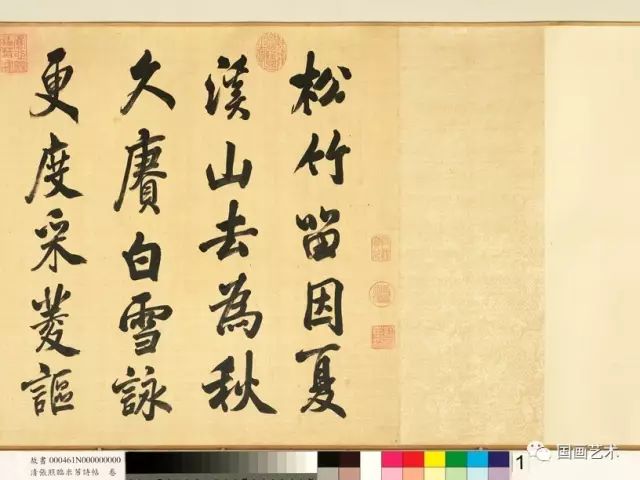 松竹留因夏
溪山去為秋
久賡白雪詠
更度采菱謳
故書 000461N000000000
清張照臨米芾詩帖 卷
1
国画艺术